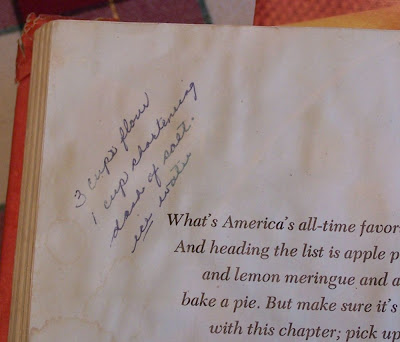 3 cups flour
1 cup shortening
dash of salt.
ice water
What's America's all-time favor
And heading the list is apple p
and lemon meringue and a
bake a pie. But make sure it's
with this chapter; pick up